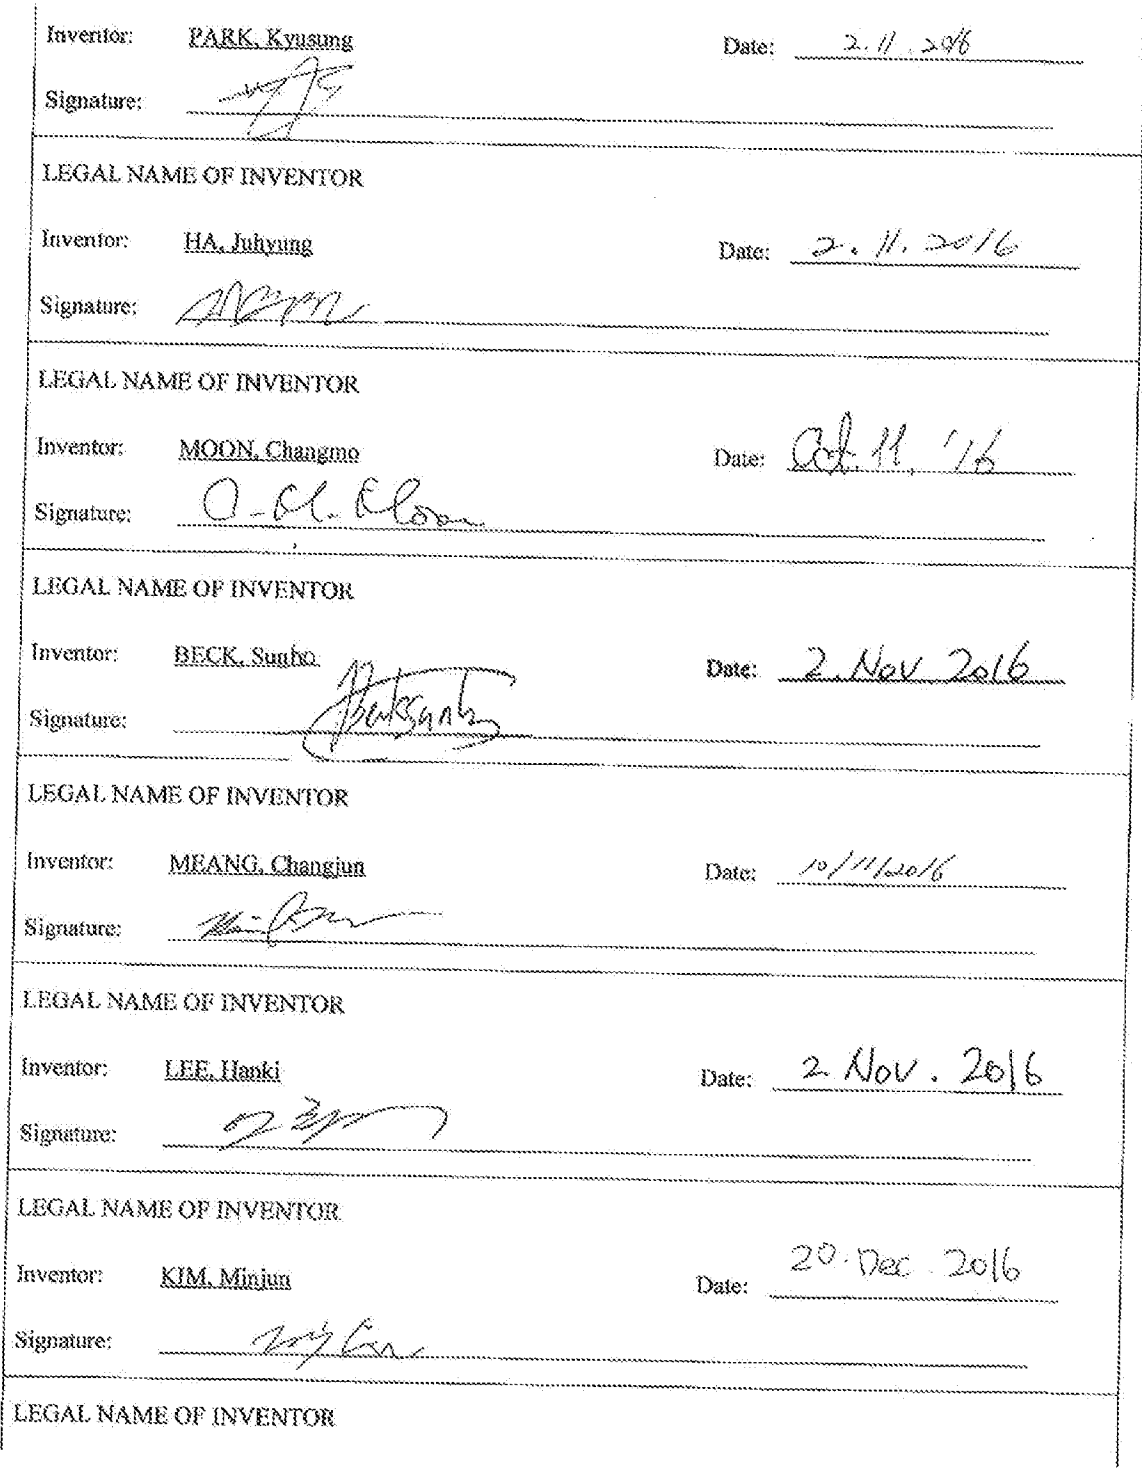 Inventor: PARK, Kyusung Date: 2.11.2016
Signature:
LEGAL NAME OF INVENTOR
Inventor: HA, Juhyung Date: 2.11.2016
Signature:
LEGAL NAME OF INVENTOR
Inventor: MOON, Changmo Date: Oct. 11, '16
Signature: C. M. Moon
LEGAL NAME OF INVENTOR
Inventor: BECK, Sunho Date: 2. Nov 2016
Signature: BeckSunho
LEGAL NAME OF INVENTOR
Inventor: MEANG, Changjun Date: 10/11/2016
Signature:
LEGAL NAME OF INVENTOR
Inventor: LEE, Hanki Date: 2 Nov. 2016
Signature:
LEGAL NAME OF INVENTOR
Inventor: KIM, Minjun Date: 20. Dec. 2016
Signature:
LEGAL NAME OF INVENTOR